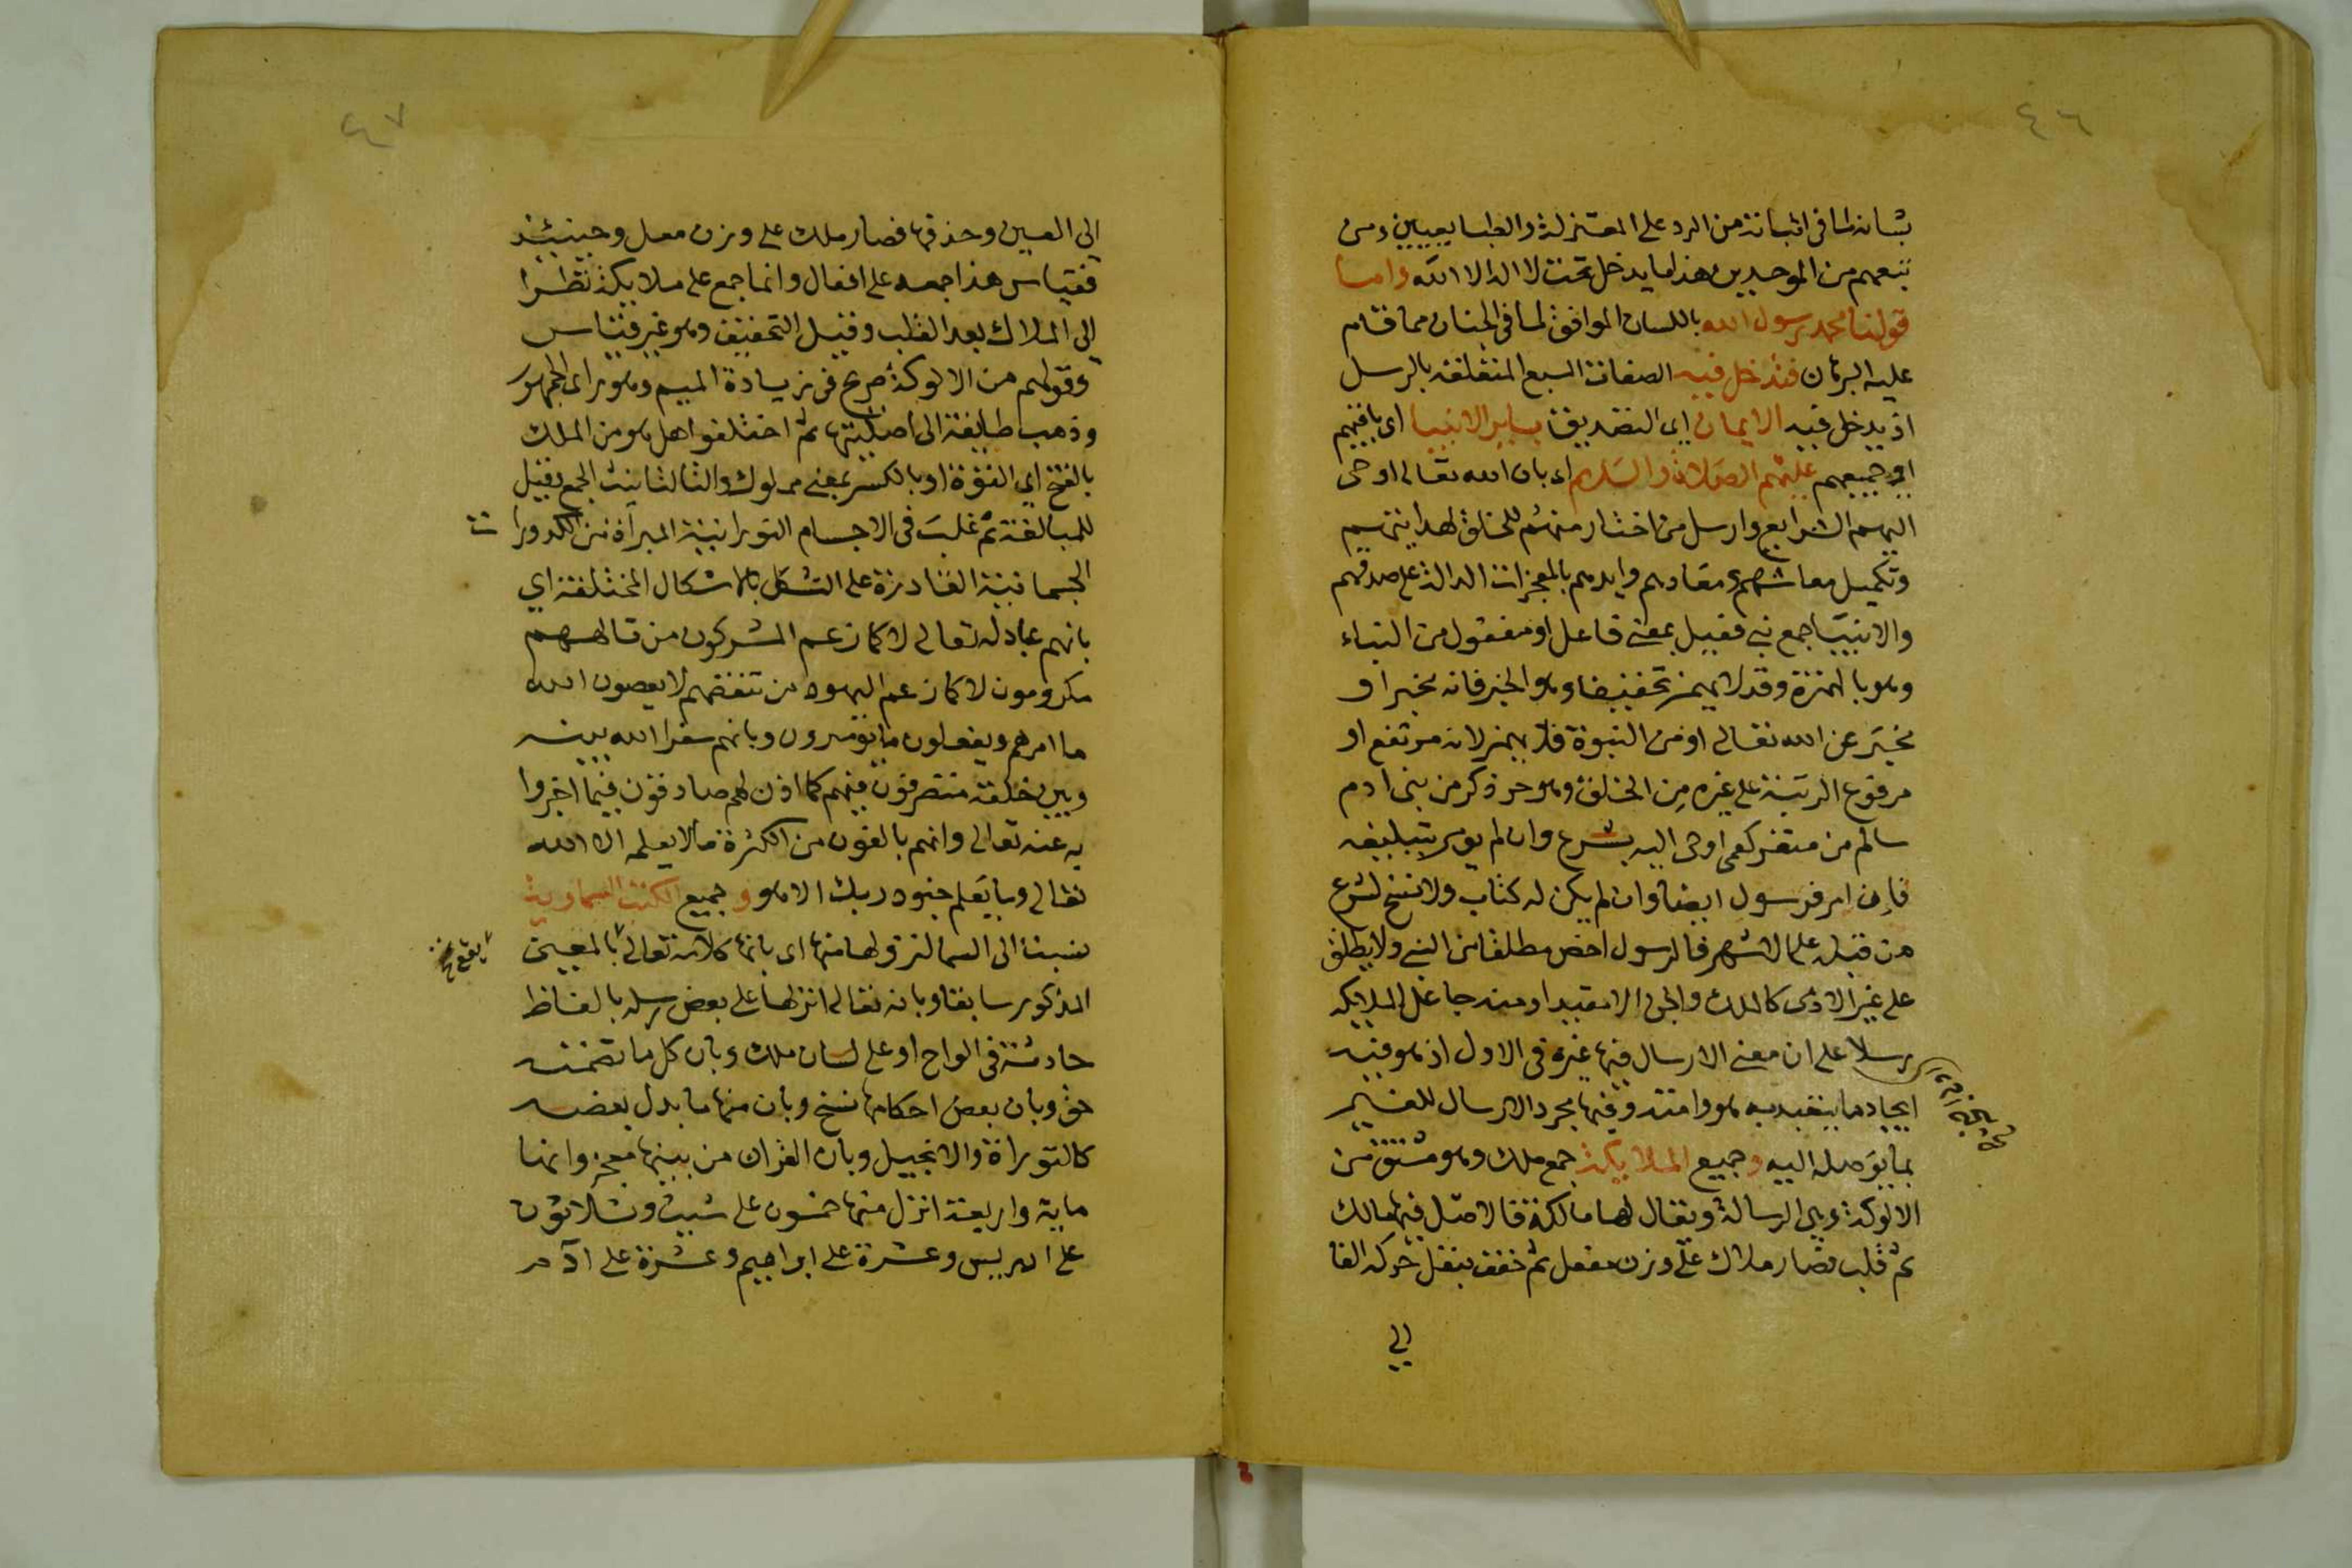 ٤٦
بشانه لما في اثباته من الرد على المعتزلة والطبايعيين ومن
تبعهم من الموحدين هذا ما يدخل تحت لا اله الا الله واما
قولنا محمد رسول الله باللسان الموافق لما في الجنان مما قام
عليه البرهان فتدخل فيه الصفات السبع المتعلقة بالرسل
اذ يدخل فيه الايمان اي التصديق بساير الانبيا اي باقيهم
او جميعهم عليهم الصلاة والسلام اي بان الله تعالى اوحى
اليهم الشرايع وارسل من اختار منهم للخلق لهدايتهم
وتكميل معاشهم ومعادهم وايدهم بالمعجزات الدالة على صدقهم
والانبيا جمع نبي فعيل بمعنى فاعل او مفعول من النباء
وهو بالهمزة وقد لا يهمز تخفيفا وهو الخبر فانه مخبر او
مخبر عن الله تعالى او من النبوة فلا يهمز لانه مرتفع او
مرفوع الرتبة على غيره من الخلق وهو حر ذكر من بني ادم
سالم من منفر كعمى اوحى اليه بشرع وان لم يومر بتبليغه
فان امر فرسول ايضا وان لم يكن له كتاب ولا نسخ لشرع
من قبله على الاشهر فالرسول اخص مطلقا من النبي ولا يطلق
على غير الادمى كالملك والجن الا مقيدا ومنه جاعل الملايكة
رسلا على ان معنى الارسال فيها غيره في الاول اذ هو فيه
ايجاد ما يتعبد به هو وامته وفيها مجرد الارسال للغير
بما يوصله اليه وجميع الملايكة جمع ملك وهو مشتق من
الالوكة وهي الرسالة ويقال لها مالكة فالاصل فيها مالك
ثم قلب فصار ملاك على وزن مفعل ثم خفف بنقل حركة الفا
الى
٤٧
الى العين وحذفها فصار ملك على وزن معل وحينئذ
فقياس هذا جمعه على افعال وانما جمع على ملايكة نظرا
الى الملاك بعد القلب وقبل التخفيف وهو غير قياس
وقولهم من الالوكة صريح في زيادة الميم وهو راى الجمهور
وذهب طايفة الى اصليتها ثم اختلفوا هل هو من الملك
بالفتح اي القوة او بالكسر بمعنى مملوك والتا لتانيث الجمع وقيل
للمبالغة ثم غلبت في الاجسام النورانية المبراة من الكدورات
الجسمانية القادرة على التشكل بالاشكال المختلفة اي
بانهم عباد له تعالى لا كما زعم المشركون من تالههم
مكرمون لا كما زعم اليهود من تنقصهم لا يعصون الله
ما امرهم ويفعلون ما يومرون وبانهم سفرا الله بينه
وبين خلقه متصرفون فيهم كما اذن لهم صادقون فيما اخبروا
به عنه تعالى وانهم بالغون من الكثرة ما لا يعلمه الا الله
تعالى وما يعلم جنود ربك الا هو وجميع الكتب السماوية
نسبة الى السما لنزولها منها اي بانها كلامه تعالى بالمعنى
المذكور سابقا وبانه تعالى انزلها على بعض رسله بالفاظ
حادثة في الواح او على لسان ملك وبان كل ما تضمنته
حق وبان بعض احكامها نسخ وبان منها ما بدل بعضه
كالتوراة والانجيل وبان القران من بينها معجز وانها
ماية واربعة انزل منها خمسون على شيث وثلاثون
على ادريس وعشرة على ابراهيم وعشرة على آدم